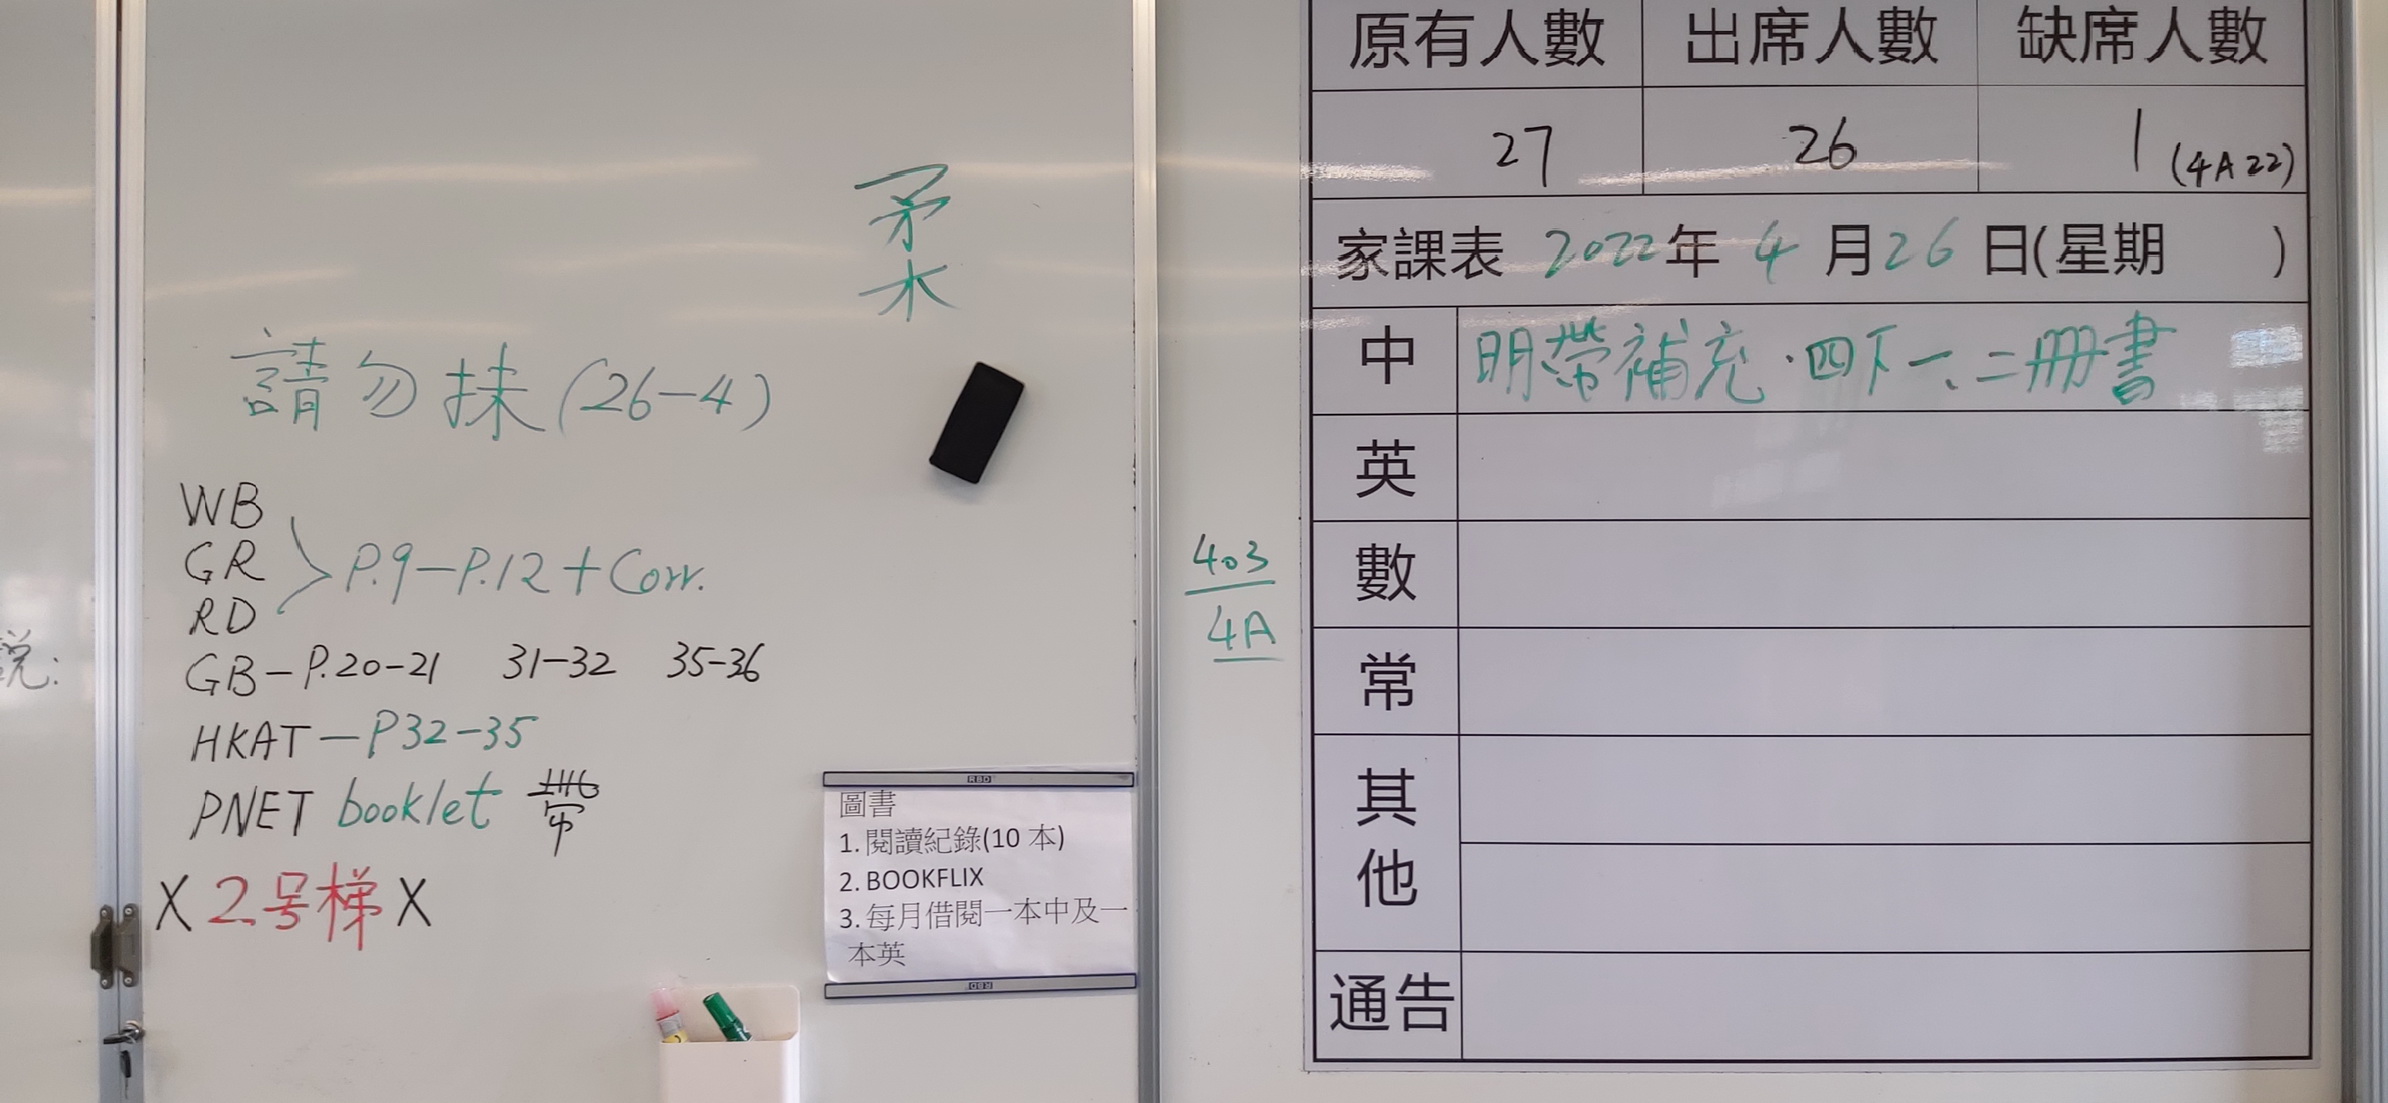 矛
木
請勿抹(26-4)
WB
GR
RD
P.9-P.12+Corr.
GB-P.20-21 31-32 35-36
HKAT-P32-35
PNET booklet 帶
X 2号梯 X
說:
RBD
圖書
1. 閱讀紀錄(10 本)
2. BOOKFLIX
3. 每月借閱一本中及一
本英
RBD
403
4A
原有人數 出席人數 缺席人數
27 26 1 (4A22)
家課表 2022年 4 月 26 日(星期 )
中 明帶補充.四下一、二冊書
英
數
常
其
他
通告